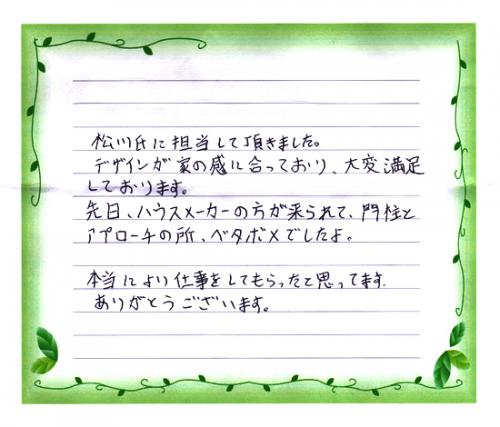 松川氏に担当して頂きました。
デザインが家の感に合っており、大変満足
しております。
先日、ハウスメーカーの方が来られて、門柱と
アプローチの所、ベタボメでしたよ。
本当により仕事をしてもらったと思ってます。
ありがとうございます。